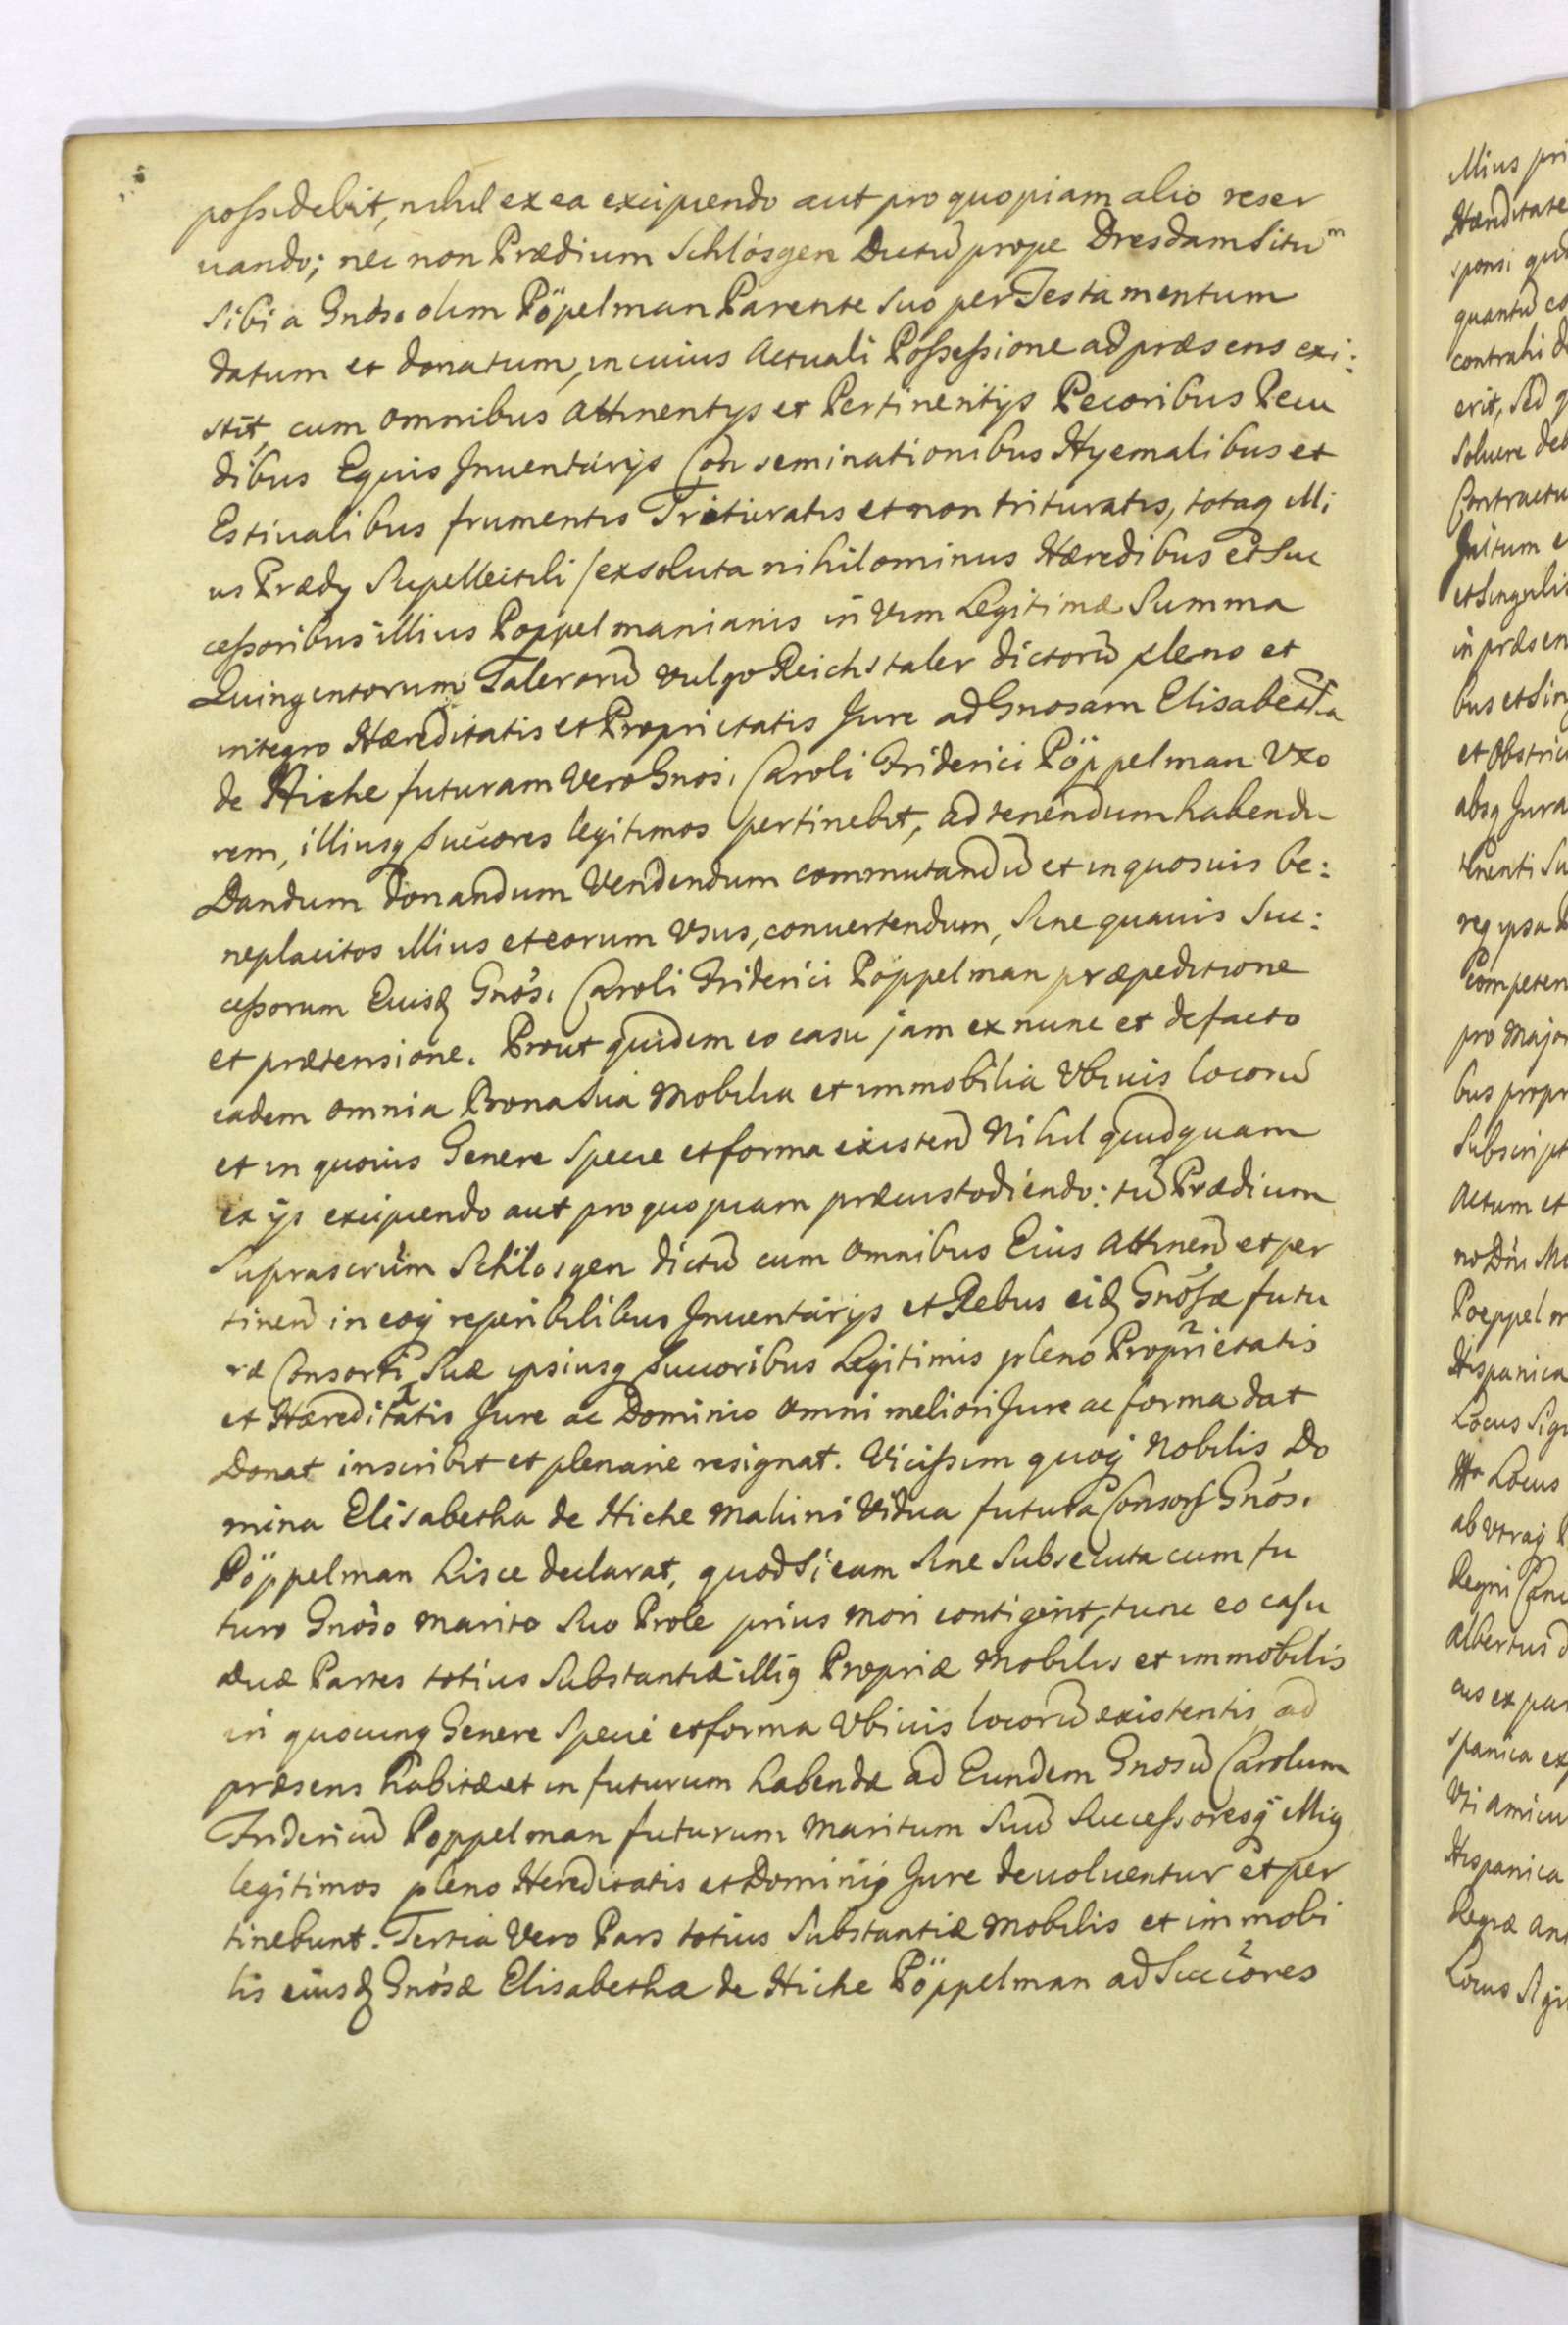 possidebit, nihil ex ea excipiendo aut pro quopiam alio reser
uando; nec non Prædium Schlósgen Dictũ prope Dresdam Situm
Sibi a Gnoso olim Pöpelman Parente Suo per Testamentum
datum et donatum, in cuius Actuali Possessione ad præsens exi:
stit, cum omnibus Attinentys et Pertinentijs Pecoribus Pecu
dibus Equis Inuentarijs Conseminationibus Hyemalibus et
Estiualibus frumentis Trituratis et non trituratis, totaq illi
us Prædy Supellectili /exsoluta nihilominus Hæredibus et Suc
cessoribus illius Poppelmanianis in Vim Legitimæ Summa
Quingentorum Talerorũ vulgo Reichstaler dictorũ pleno et
integro Hæreditatis et Proprietatis Jure ad Gnosam Elisabetha
de Hiche futuram Vero Gnosi. Caroli Friderici Pöppelman Vxo
rem, illiusq Succores legitimos pertinebit, ad tenendum habendu
Dandum Donandum Vendendum commutandũ et in quosuis be:
neplacitos illius et eorum Vsus, conuertendum, Sine quauis Suc:
cessorum Euisd Gnosi. Caroli Friderici Pöppelman præpeditione
et prætensione. Prout quidem eo casu jam ex nunc et de facto
eadem omnia Bona Sua Mobilia et immobilia Vbiuis locorũ
et in quouis Genere Specie et forma existen Nihil quidquam
ex ijs excipiendo aut pro quopiam præcustodiendo: tũ Prædium
Suprascrũm Schlosgen dictũ cum omnibus Eius Attinen et per
tinen in eoq reperibilibus Inuentarijs et Rebus eid Gnosæ futu
ræ Consorti Suæ ipsiusq Succoribus Legitimis pleno Proprietatis
et Hæreditatis Jure ac Dominio omni meliori Jure ac forma dat
Donat inscribit et plenarie resignat. Vicissim quoq Nobilis Do
mina Elisabetha de Hiche Mahini Vidua futura Consors Gnosi.
Pöppelman hisce declarat, quod Si eam Sine Subsecuta cum fu
turo Gnoso marito Suo Prole prius mori contigerit, tunc eo casu
duæ Partes totius Substantiæ illiq Propriæ Mobilis et immobilis
in quocunq Genere Specie et forma Vbiuis locorũ existentis ad
præsens habitæ et in futurum habendæ ad Eundem Gnosũ Carolum
Fridericũ Poppelman futurum Maritum Suũ Successoresq illiq
legitimos pleno Hereditatis et Dominij Jure deuoluentur et per
tinebunt. Tertia Vero Pars totius Substantiæ mobilis et immobi
lis eiusd Gnosæ Elisabetha de Hiche Pöppelman ad Succores
illius pri
Hæreditate
sponsi
quantũ co
contrahi
erit, Sed
Soluere deb
Contractu
et Singulis
in præsen
bus et Sin
et Obstric
absq Jura
req ipsa
Competen
pro major
bus propr
Subscript
Actum et
no Dni
Poeppelm
Hispanica
Locus Sigi
Locus
ab vtraq
Regni Canc
Albertus
eus ex par
spanica ex
Vti amicu
Hispanica
Regiæ
Locus Sigi